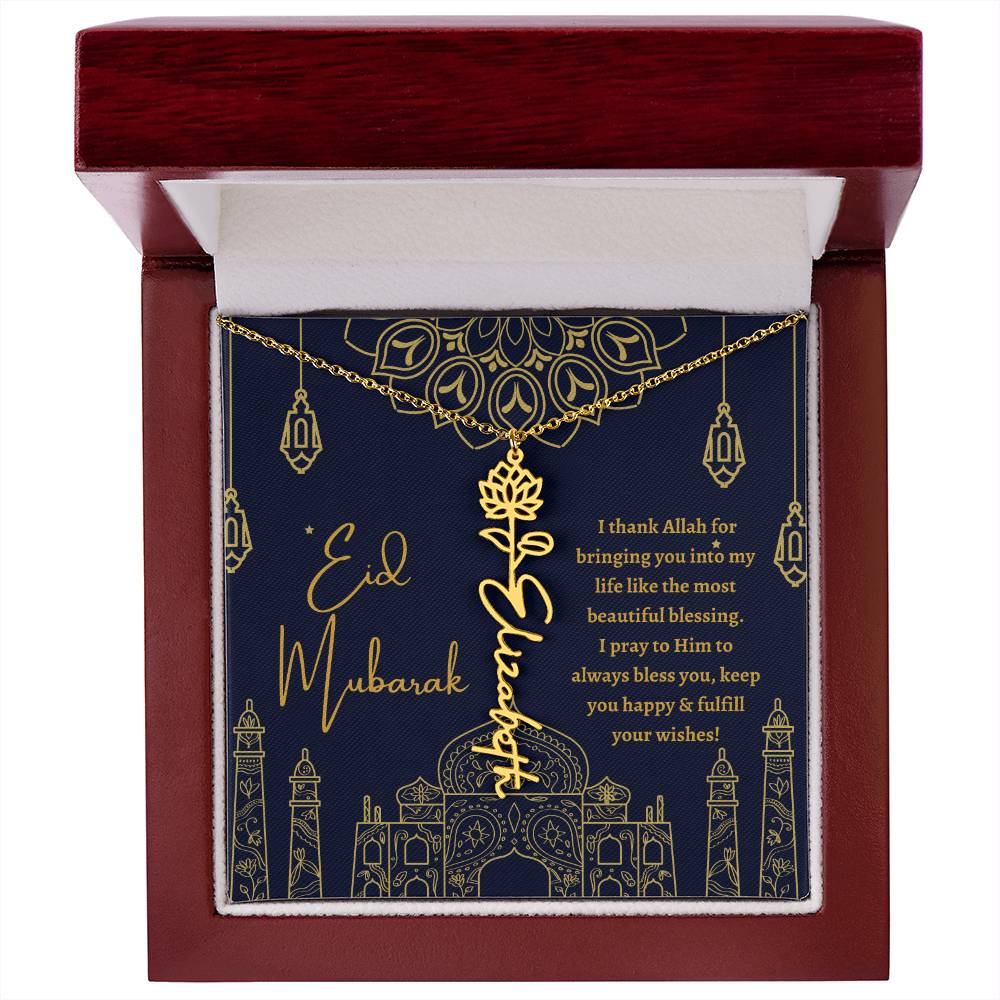 Eid
Mubarak
Elizabeth
I thank Allah for
bringing you into my
life like the most
beautiful blessing.
I pray to Him to
always bless you, keep
you happy & fulfill
your wishes!